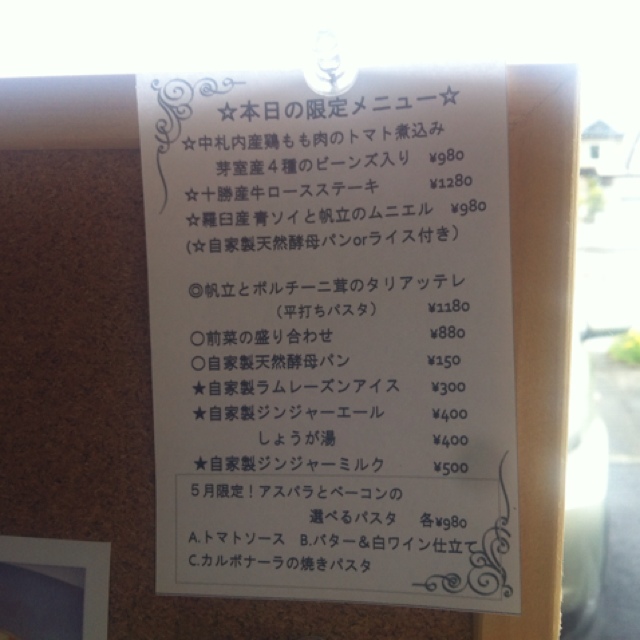 ☆本日の限定メニュー☆
☆中札内産鶏もも肉のトマト煮込み
芽室産4種のビーンズ入り ¥980
☆十勝産牛ロースステーキ ¥1280
☆羅臼産青ソイと帆立のムニエル ¥980
(☆自家製天然酵母パンorライス付き)
◎帆立とポルチーニ茸のタリアッテレ
(平打ちパスタ) ¥1180
○前菜の盛り合わせ ¥880
○自家製天然酵母パン ¥150
★自家製ラムレーズンアイス ¥300
★自家製ジンジャーエール ¥400
しょうが湯 ¥400
★自家製ジンジャーミルク ¥500
5月限定!アスパラとベーコンの
選べるパスタ 各¥980
A.トマトソース B.バター&白ワイン仕立て
C.カルボナーラの焼きパスタ